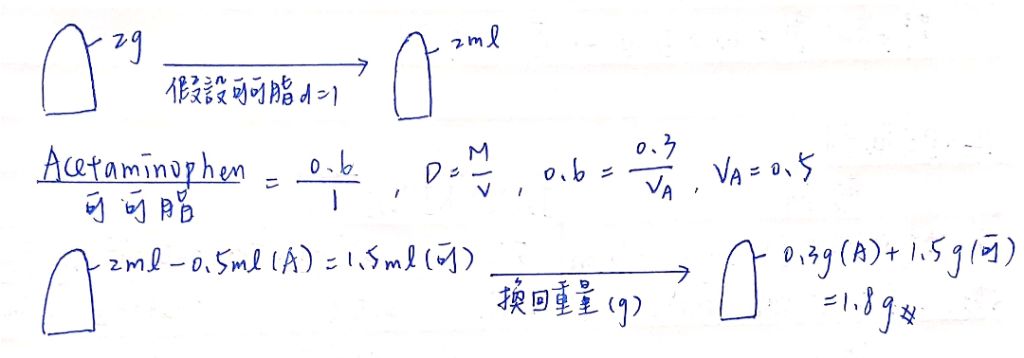 2g 2ml
假設可可脂d=1
Acetaminophen/可可脂 = 0.6/1 , D = M/V , 0.6 = 0.3/VA , VA = 0.5
2ml - 0.5ml (A) = 1.5ml (可) 0.3g (A) + 1.5g (可)
換回重量(g) = 1.8g #